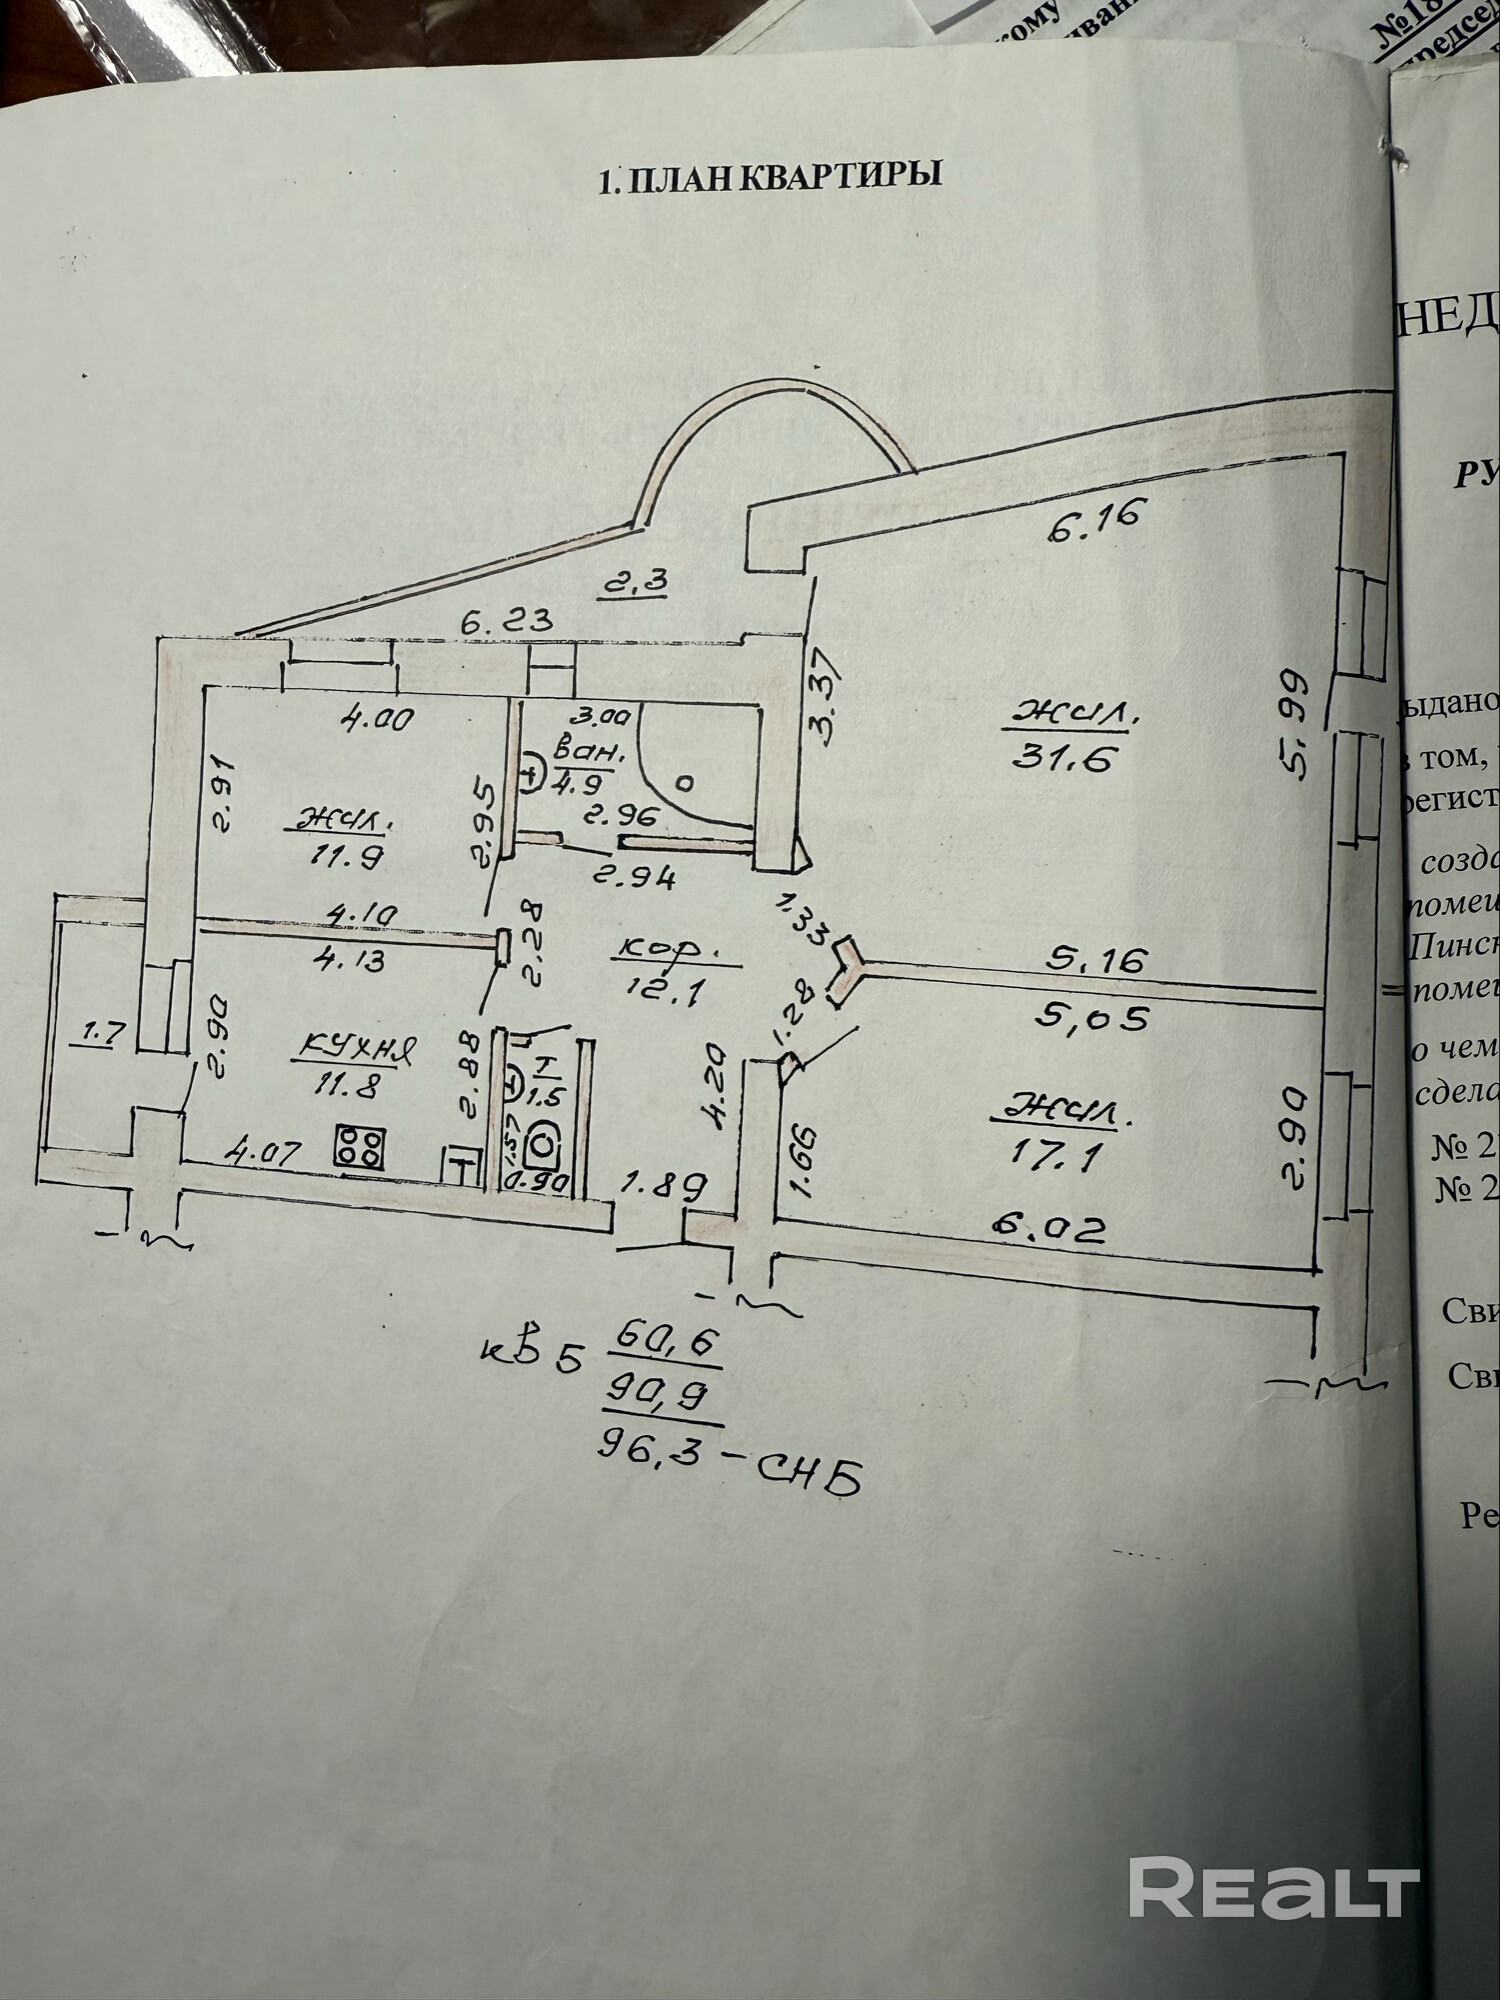 кому
№18
1. ПЛАН КВАРТИРЫ
НЕД
РУ
2,3
6.23
6.16
4.00
3.00
ван.
4.9
2.96
2.94
3.37
жил.
31.6
5.99
2.91
жил.
11.9
2.95
4.10
4.13
2.28
кор.
12.1
1.33
1.28
5.16
5,05
1.7
2.90
кухня
11.8
2.88
4.07
Т
1.5
1.57
0.90
4.20
1.89
1.66
жил.
17.1
2.90
6.02
кв 5
60,6
90,9
96,3 – СНБ
ыдано
в том,
регист
созда
помещ
Пинск
помещ
о чем
сдела
№ 2
№ 2
Сви
Сви
Ре
REALT